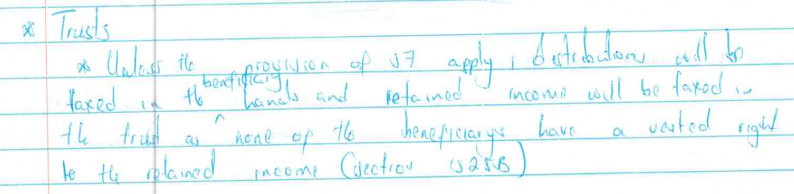 * Trusts
* Unless the provision of s7 apply, distributions will be
taxed in the beneficiary hands and retained income will be taxed in
the trust as none of the beneficiarys have a vested right
to the retained income (section s25B)